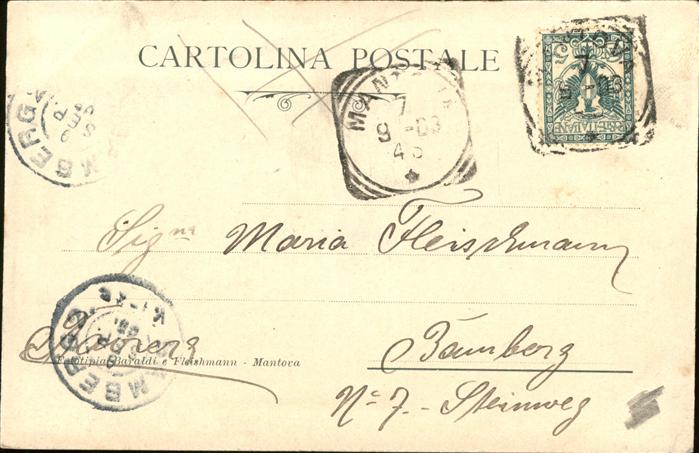 CARTOLINA POSTALE
MANTOVA
7
9 - 03
4 S
POSTE ITALIANE
BAMBERG
Sigᶰᵃ Maria Fleischmann
Fototipia Baraldi e Fleishmann - Mantova
Bamberg
BAMBERG
Nº 7. - Steinweg